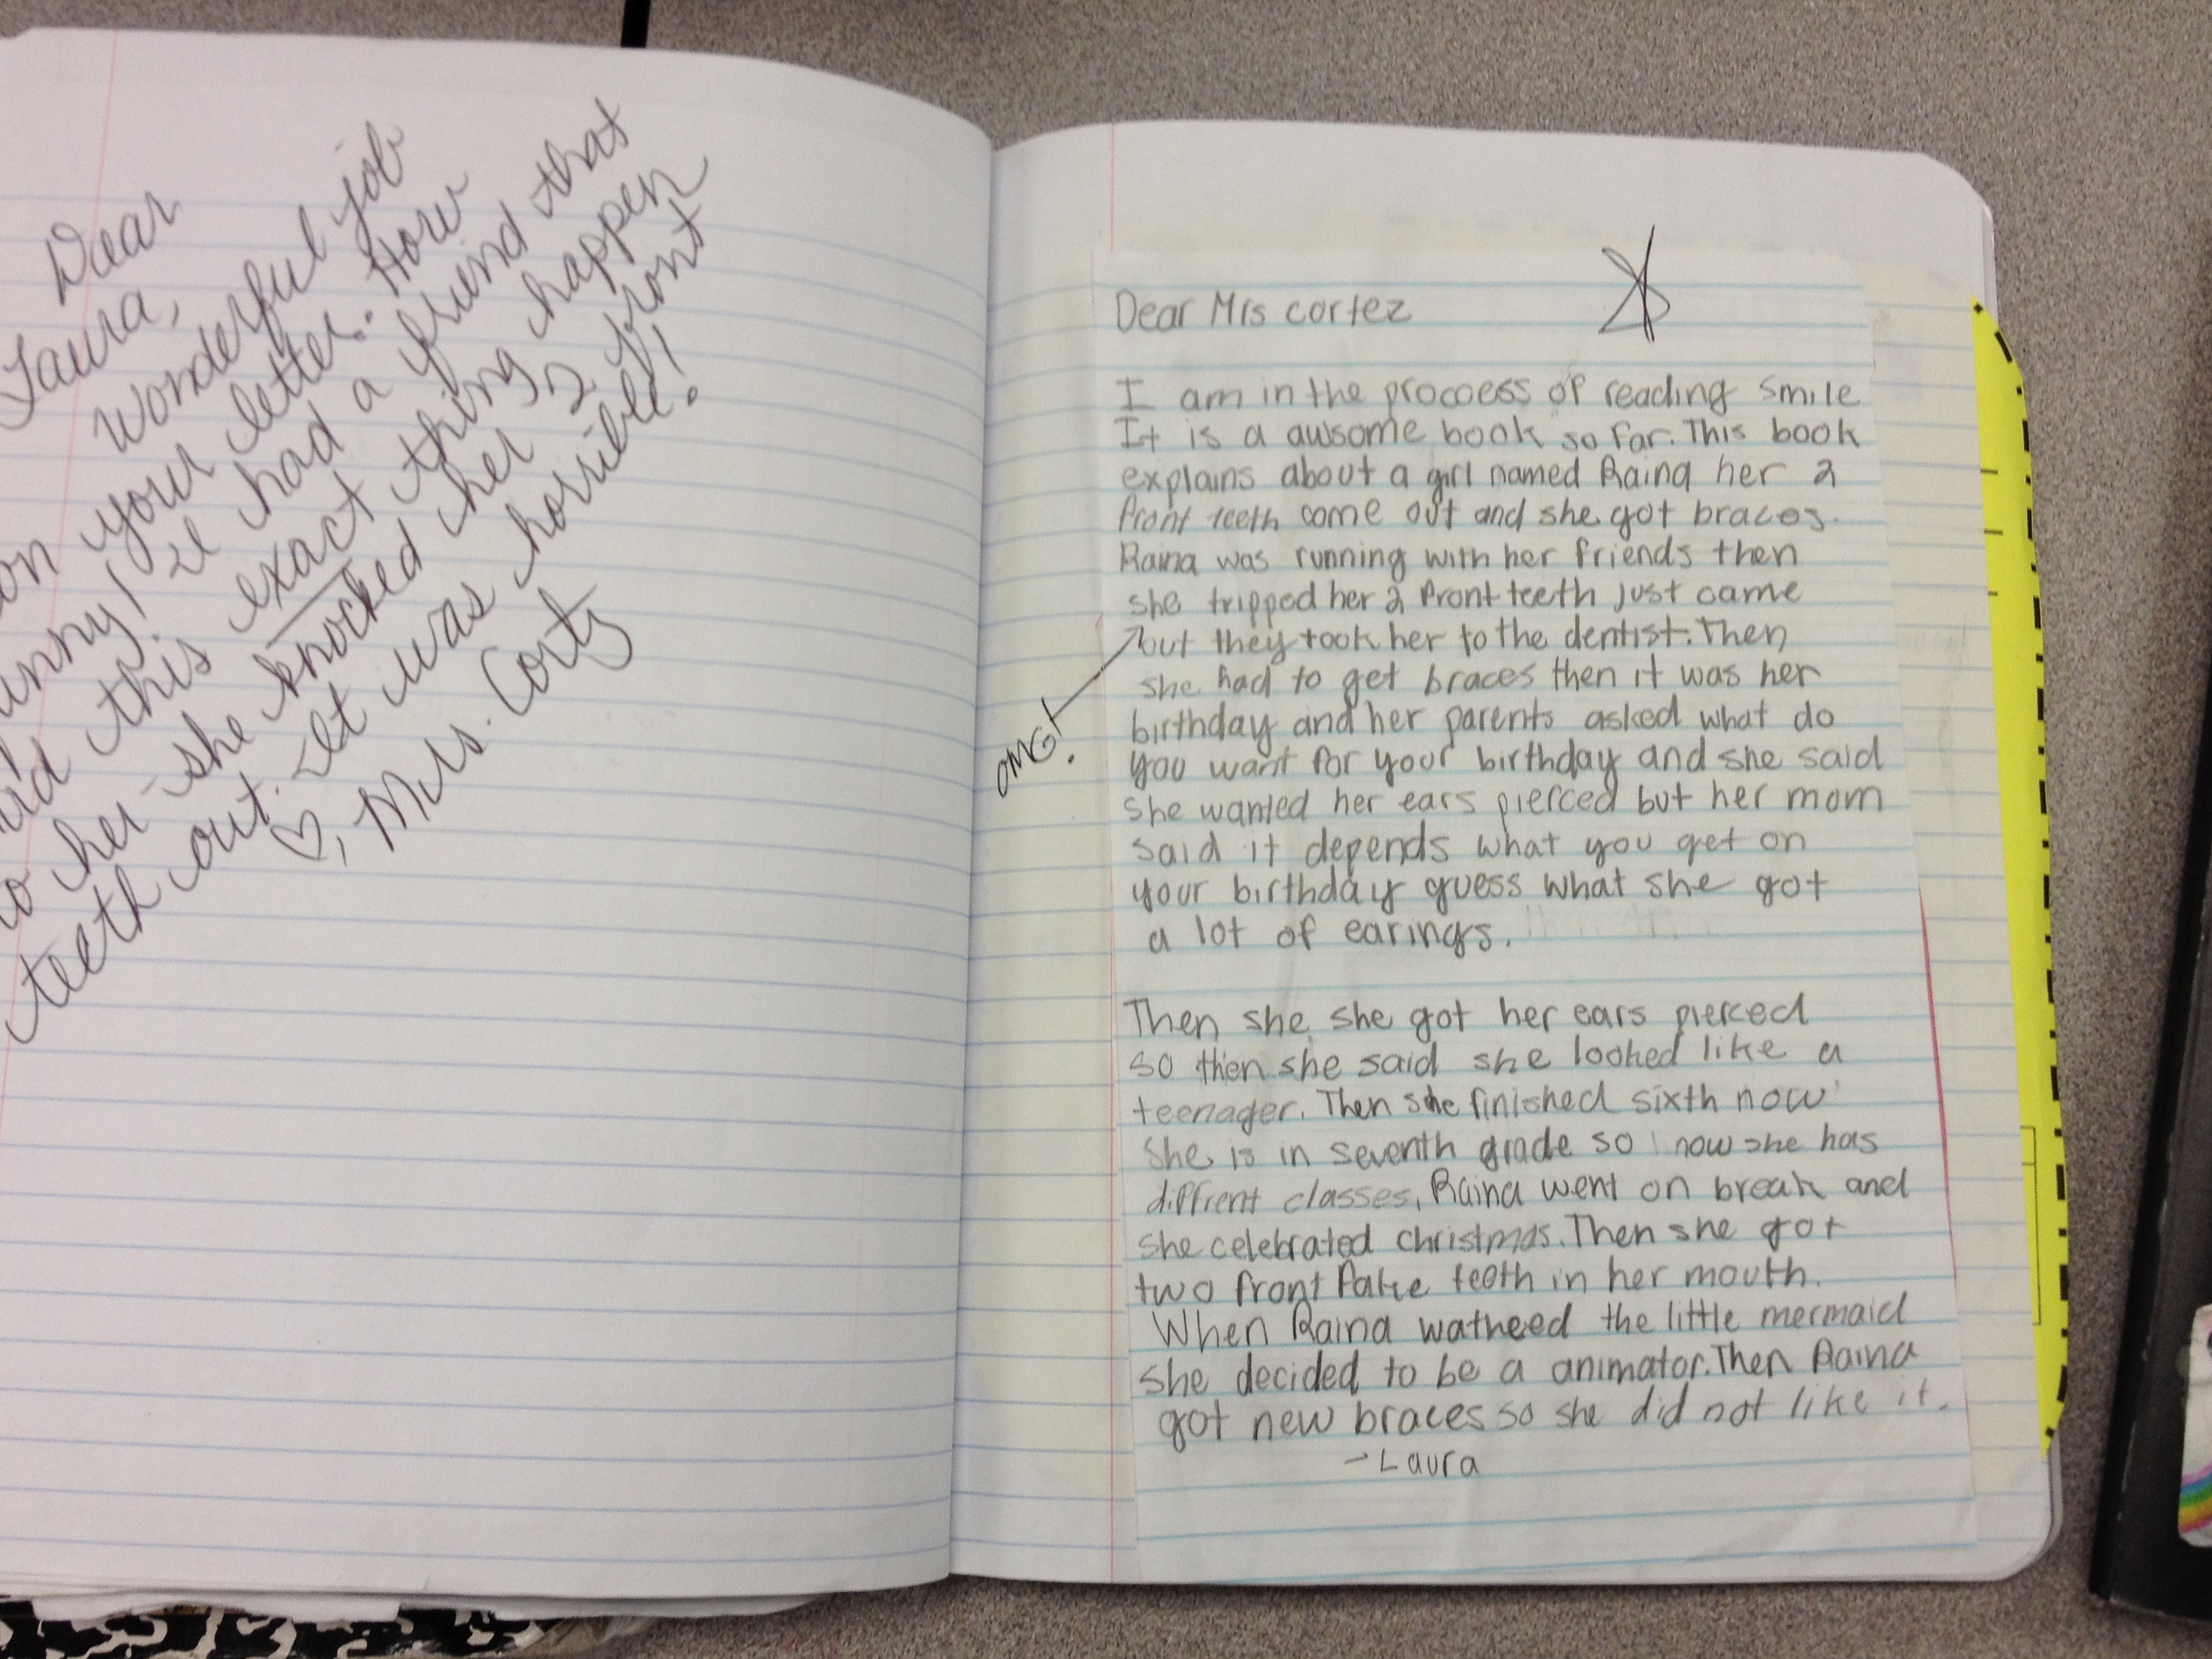 Dear
Laura,
Wonderful job
on your letter. How
funny! I had a friend that
had this exact thing happen
to her-she knocked her 2 front
teeth out. It was horrible!
♡, Mrs. Cortez
OMG!
Dear Mrs cortez
I am in the proccess of reading smile
It is a awsome book so far. This book
explains about a girl named Raina her 2
front teeth come out and she got braces.
Raina was running with her friends then
she tripped her 2 front teeth just came
out they took her to the dentist. Then
she had to get braces then it was her
birthday and her parents asked what do
you want for your birthday and she said
she wanted her ears pierced but her mom
said it depends what you get on
your birthday guess what she got
a lot of earings.
Then she she got her ears pierced
so then she said she looked like a
teenager. Then she finished sixth now
she is in seventh grade so now she has
diffrent classes. Raina went on break and
she celebrated christmas. Then she got
two front fake teeth in her mouth.
When Raina watheed the little mermaid
she decided to be a animator. Then Raina
got new braces so she did not like it.
- Laura